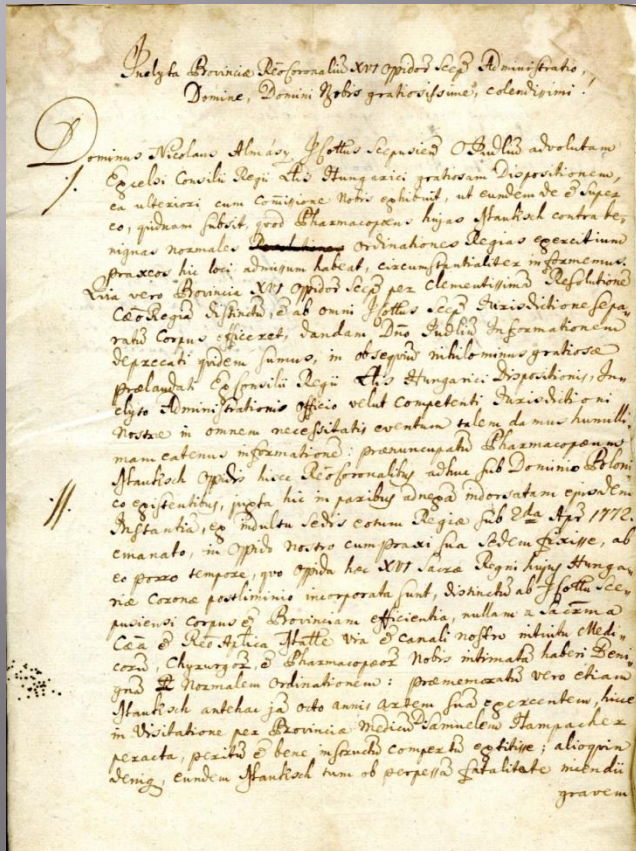 Inclyta Provinciae Reocoronaliū XVI Oppidor̄ Scep̄ Administratio,
Domine, Domini Nobis gratiosissime, colendissimi!
Dominus Nicolaus Almásy Icottus Scepusien̄ OJudliū advolutam
1/. Excelsi Consilii Regii Ltis Hungarici gratiosam Dispositionem,
ea ulteriori cum Com̄issione Nobis exhibuit, ut eundem de & super
eo, quidnam subsit, quod Pharmacopæus hujas Stankisch contra be,,
nignas normales ordinationes Regias exercitium
praxeos hic loci admissum habeat, circumstantialiter informemus.
Quia vero Provincia XVI Oppidor̄ Scep̄ per clementissimā Resolutionē
Cæo Regiā distinctū, & ab omni Icottus Scep̄ Jurisdictione sepa,,
ratū Corpus efficeret, dandam Dn̄o Judliū Informationem
deprecati quidem sumus, in obsequiū nihilominus gratiosæ
prælaudati Exconsilii Regii Ltis Hungarici Dispositionis, In,,
clyto Administrationis officio velut Competenti Jurisdictioni
Nostræ in omnem necessitatis eventum talem damus humilli,,
mam eatenus informationē: prænuncupatū Pharmacopæum
Stankisch Oppidis hisce Reocoronalibus adhuc sub Dominio Poloni,,
11. co existentibus, juxta hic in paribus adnexā indorsatam ejusdem
Instantia, ex indultu Sedis eotum Regiæ sub 2da Apr 1772.
emanato, in Oppido Nostro cum praxi sua Sedem fixisse, ab
eo porro tempore, quo Oppida hæc XVI Sacræ Regni hujus Hunga,,
riæ Coronæ postliminio incorporata sunt, distinctū ab Icottu Sce,,
pusiensi Corpus & Provinciam efficientia, nullam a Sacrma
Cæa & Reo Aplica Mattte via & canali nostro intuitu Medi,,
corū, Chyrurgor̄, & Pharmacopæor̄ Nobis intimatā haberi Beni
gnā Normalem Ordinationem: præmemoratū vero etiam
Stankisch antehac jā octo annis artem suā exercentem, hicce
in Visitatione per Provinciæ Medicū Samuelem Hampacher
peracta, peritū & bene instructū compertū extitisse; alioquin
deniq, eundem Stankisch tum ob perpessā fatalitatē incendii
gravem